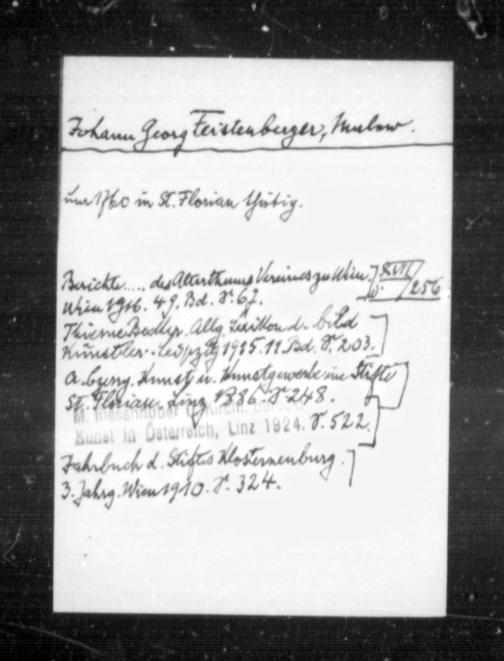 Johann Georg Feistenberger, Maler.
um 1760 in St. Florian thätig.
Berichte .... des Alterthums Vereines zu Wien.
XVII
256
Wien 1916. 49. Bd. S. 67.
Thieme Becker. Allg. Lexikon d. bild
Künstler. Leipzig 1915. 11. Bd. S. 203.
A. Czerny. Kunst u. Kunstgewerbe im Stifte
St. Florian. Linz 1886. S. 248.
M. Riesenhuber d. kirchl. Barock
Kunst in Österreich, Linz 1924. S. 522.
Jahrbuch d. Stiftes Klosterneuburg.
3. Jahrg. Wien 1910. S. 324.